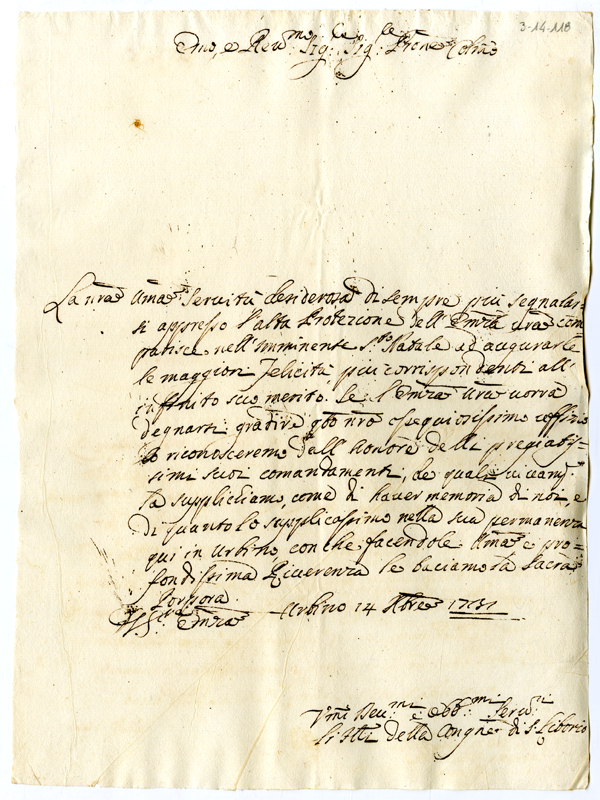 3-14-118
Emo, e Rev.mo Sig.re Sig.re Prone Colmo
La nra Uma Servitù desiderosa di sempre più segnalar-
si appresso l'alta Protezione dell'Emza vra com
parisce nell'imminente Sto Natale ad augurarle
le maggiori felicità più corrispondenti all'
infinito suo merito. Se l'Emza Vra vorrà
degnarsi gradire qto nro ossequiosissimo uffizio
lo riconosceremo dall'honore delli pregiatis-
simi suoi comandamenti, de quali
la supplichiamo, come di haver memoria di noi, e
di quanto lo supplicassimo nella sua permanenza
qui in Urbino con che facendole Uma e pro=
fondissima Riverenza le baciamo la Sacra
Porpora.
Emza Urbino 14 Xbre 1731
Vmi Dev.mi e Obb.mi Serv.ri
li Ffli della Congne di S. Liborio